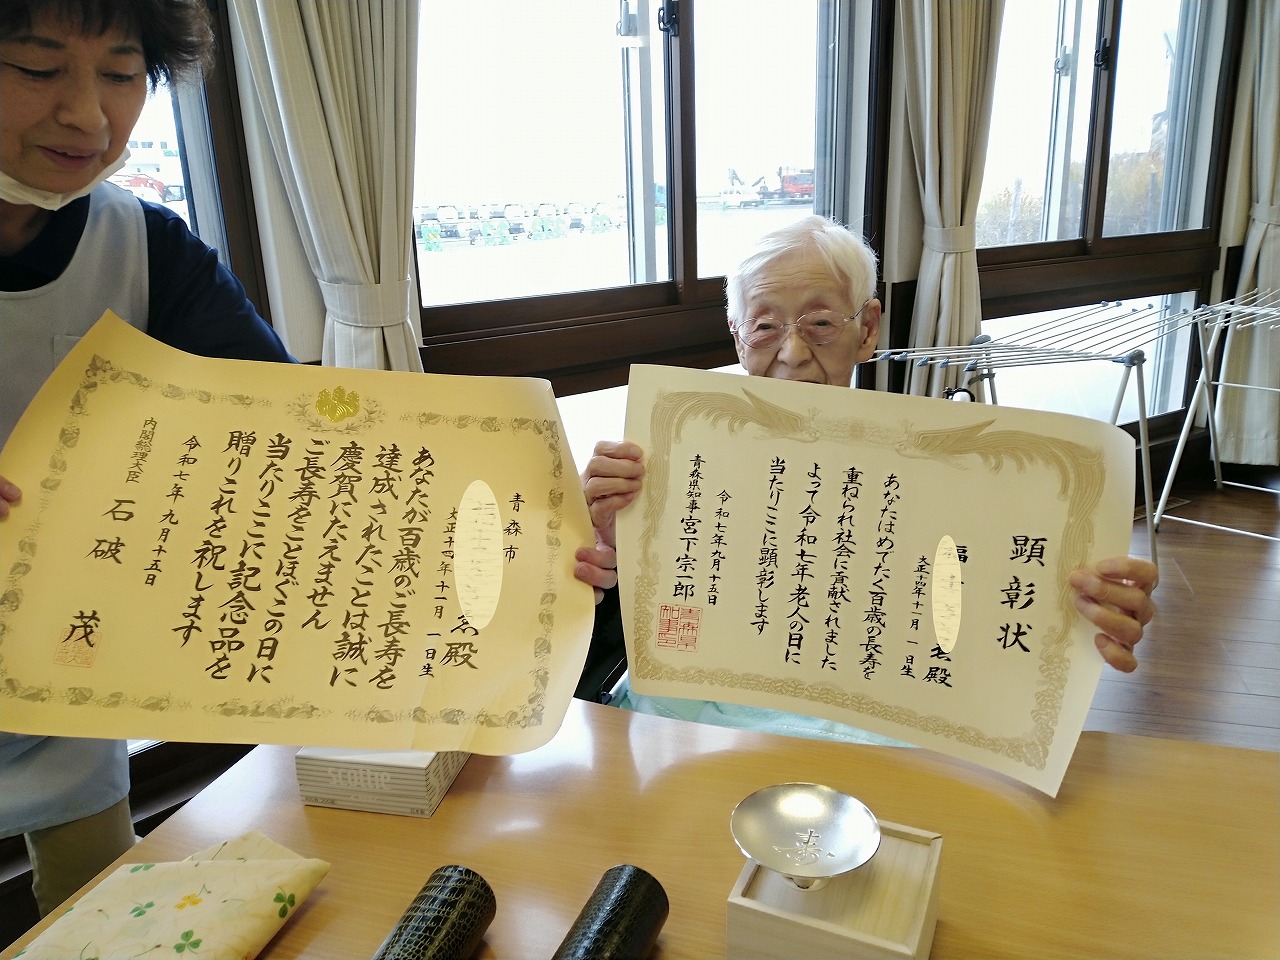 青森市
大正十四年十一月一日生
殿
あなたが百歳のご長寿を
達成されたことは誠に
慶賀にたえません
ご長寿をことほぐこの日に
当たりここに記念品を
贈りこれを祝します
令和七年九月十五日
内閣総理大臣 石破 茂
顕彰状
殿
大正十四年十一月一日生
あなたはめでたく百歳の長寿を
重ねられ社会に貢献されました
よって令和七年老人の日に
当たりここに顕彰します
令和七年九月十五日
青森県知事 宮下宗一郎
scottie
寿